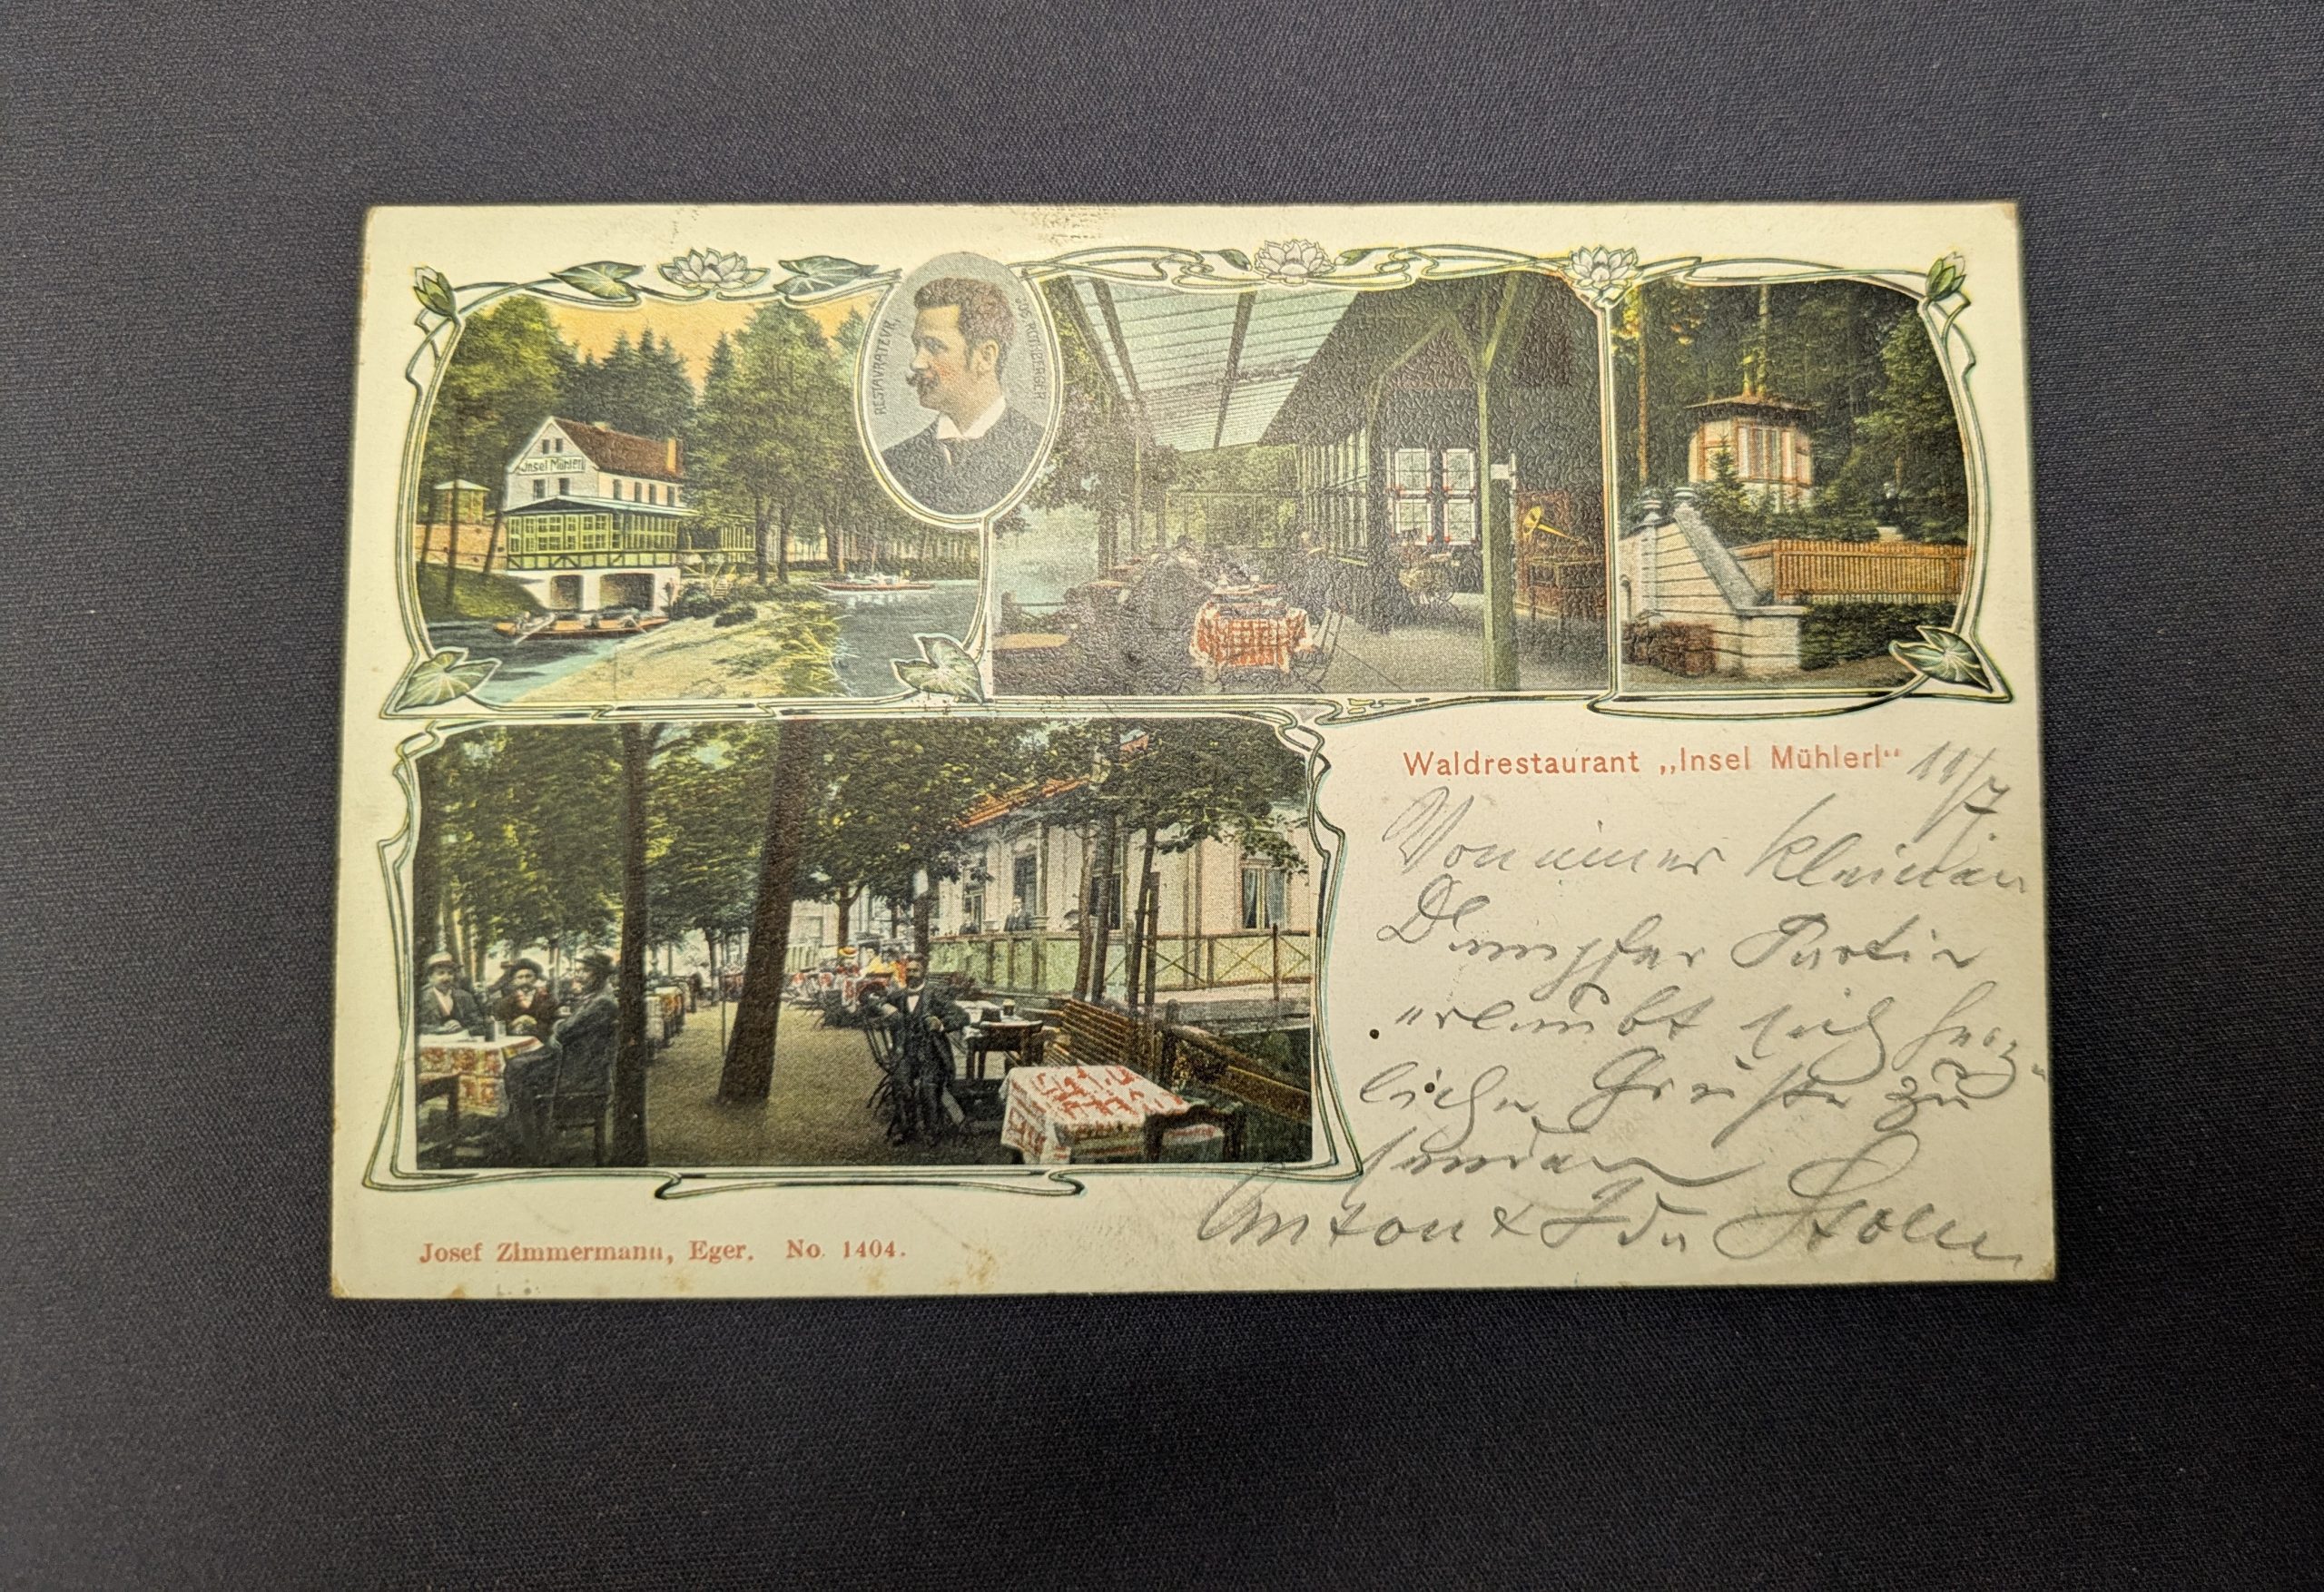 Insel Mühlerl
RESTAVRATEVR
JOS.
Waldrestaurant „Insel Mühlerl“
11/7.
Von einer kleinen
Dampfer Partie
erlaubt sich herz-
liche Grüße zu
senden
Anton & Ida
Josef Zimmermann, Eger. No. 1404.